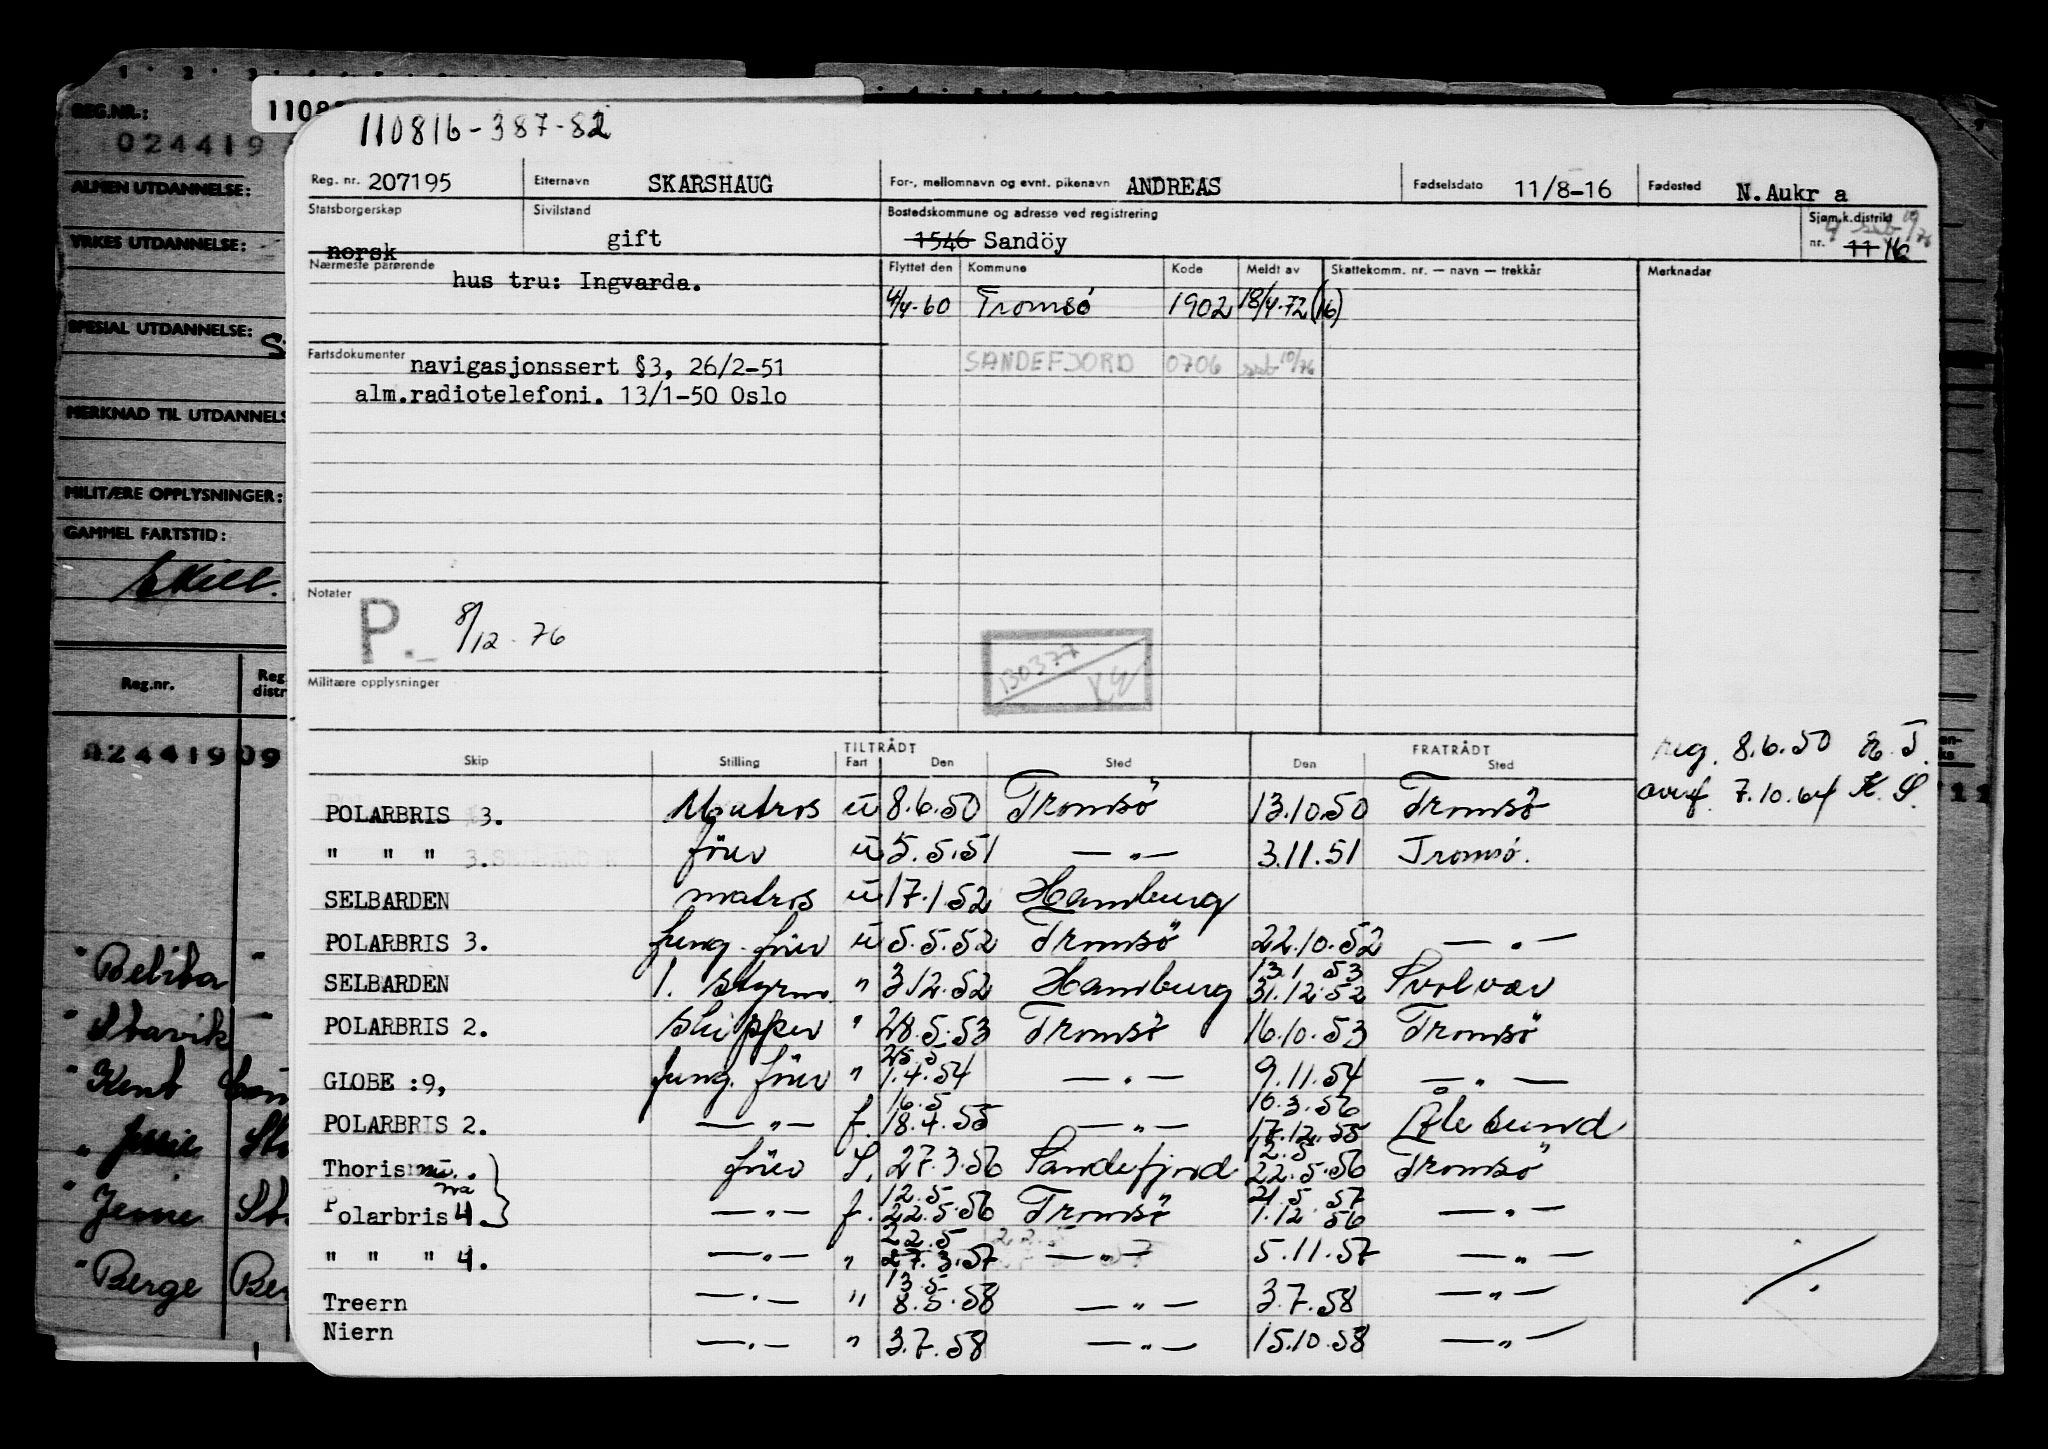 REG.NR.:
024419
ALMEN UTDANNELSE:
YRKES UTDANNELSE:
SPESIAL UTDANNELSE:
MERKNAD TIL UTDANNELS
MILITÆRE OPPLYSNINGER:
GAMMEL FARTSTID:
Reg.nr.
Reg. distr
02441909
" Belita "
" Stavik "
" Kent
" Jessie
" Jenne
" Berge
1108
110816-387-82
Reg. nr. 207195 Etternavn SKARSHAUG For-, mellomnavn og evnt. pikenavn ANDREAS Fødselsdato 11/8-16 Fødested N. Aukr a
Statsborgerskap norsk Sivilstand gift Bostedskommune og adresse ved registrering 1546 Sandöy Sjøm.k.distrikt nr. 11 16
Nærmeste pårørende hus tru: Ingvarda.
Flyttet den Kommune Kode Meldt av Skattekomm. nr. — navn — trekkår Merknader
4/4-60 Tromsö 1902 18/4-72 (16)
SANDEFJORD 0706 ssb 10/76
Fartsdokumenter navigasjonssert §3, 26/2-51
alm.radiotelefoni. 13/1-50 Oslo
Notater P. 8/12-76
130377
Militære opplysninger
TILTRÅDT FRATRÅDT
Skip Stilling Fart Den Sted Den Sted
reg. 8.6.50
overf. 7.10.64 K. S.
POLARBRIS 3. Matros u 8.6.50 Tromsö 13.10.50 Tromsö
" " " 3. förer u 5.5.51 — " — 3.11.51 Tromsö.
SELBARDEN matros u 17.1.52 Hamburg
POLARBRIS 3. fung. förer u 5.5.52 Tromsö 22.10.52 — " —
SELBARDEN 1. styrm. " 3.12.52 Hamburg 13.1.53 31.12.52 Svolvær
POLARBRIS 2. skipper " 28.5.53 Tromsö 16.10.53 Tromsö
GLOBE :9, fung. förer " 25.5 1.4.54 — " — 9.11.54 — " —
POLARBRIS 2. — " — f. 16.5 18.4.55 — " — 10.3.56 17.12.55 Ålesund
Thoris förer S. 27.3.56 Sandefjord 12.5 22.5.56 Tromsö
Polarbris 4. — " — f. 12.5 22.5.56 Tromsö 21.5.57 1.12.56 — " —
" " " 4. — " — " 22.5 27.3.57 — " — 5.11.57 — " —
Treern — " — " 13.5 8.5.58 — " — 3.7.58 — " —
Niern — " — " 3.7.58 — " — 15.10.58 — " —